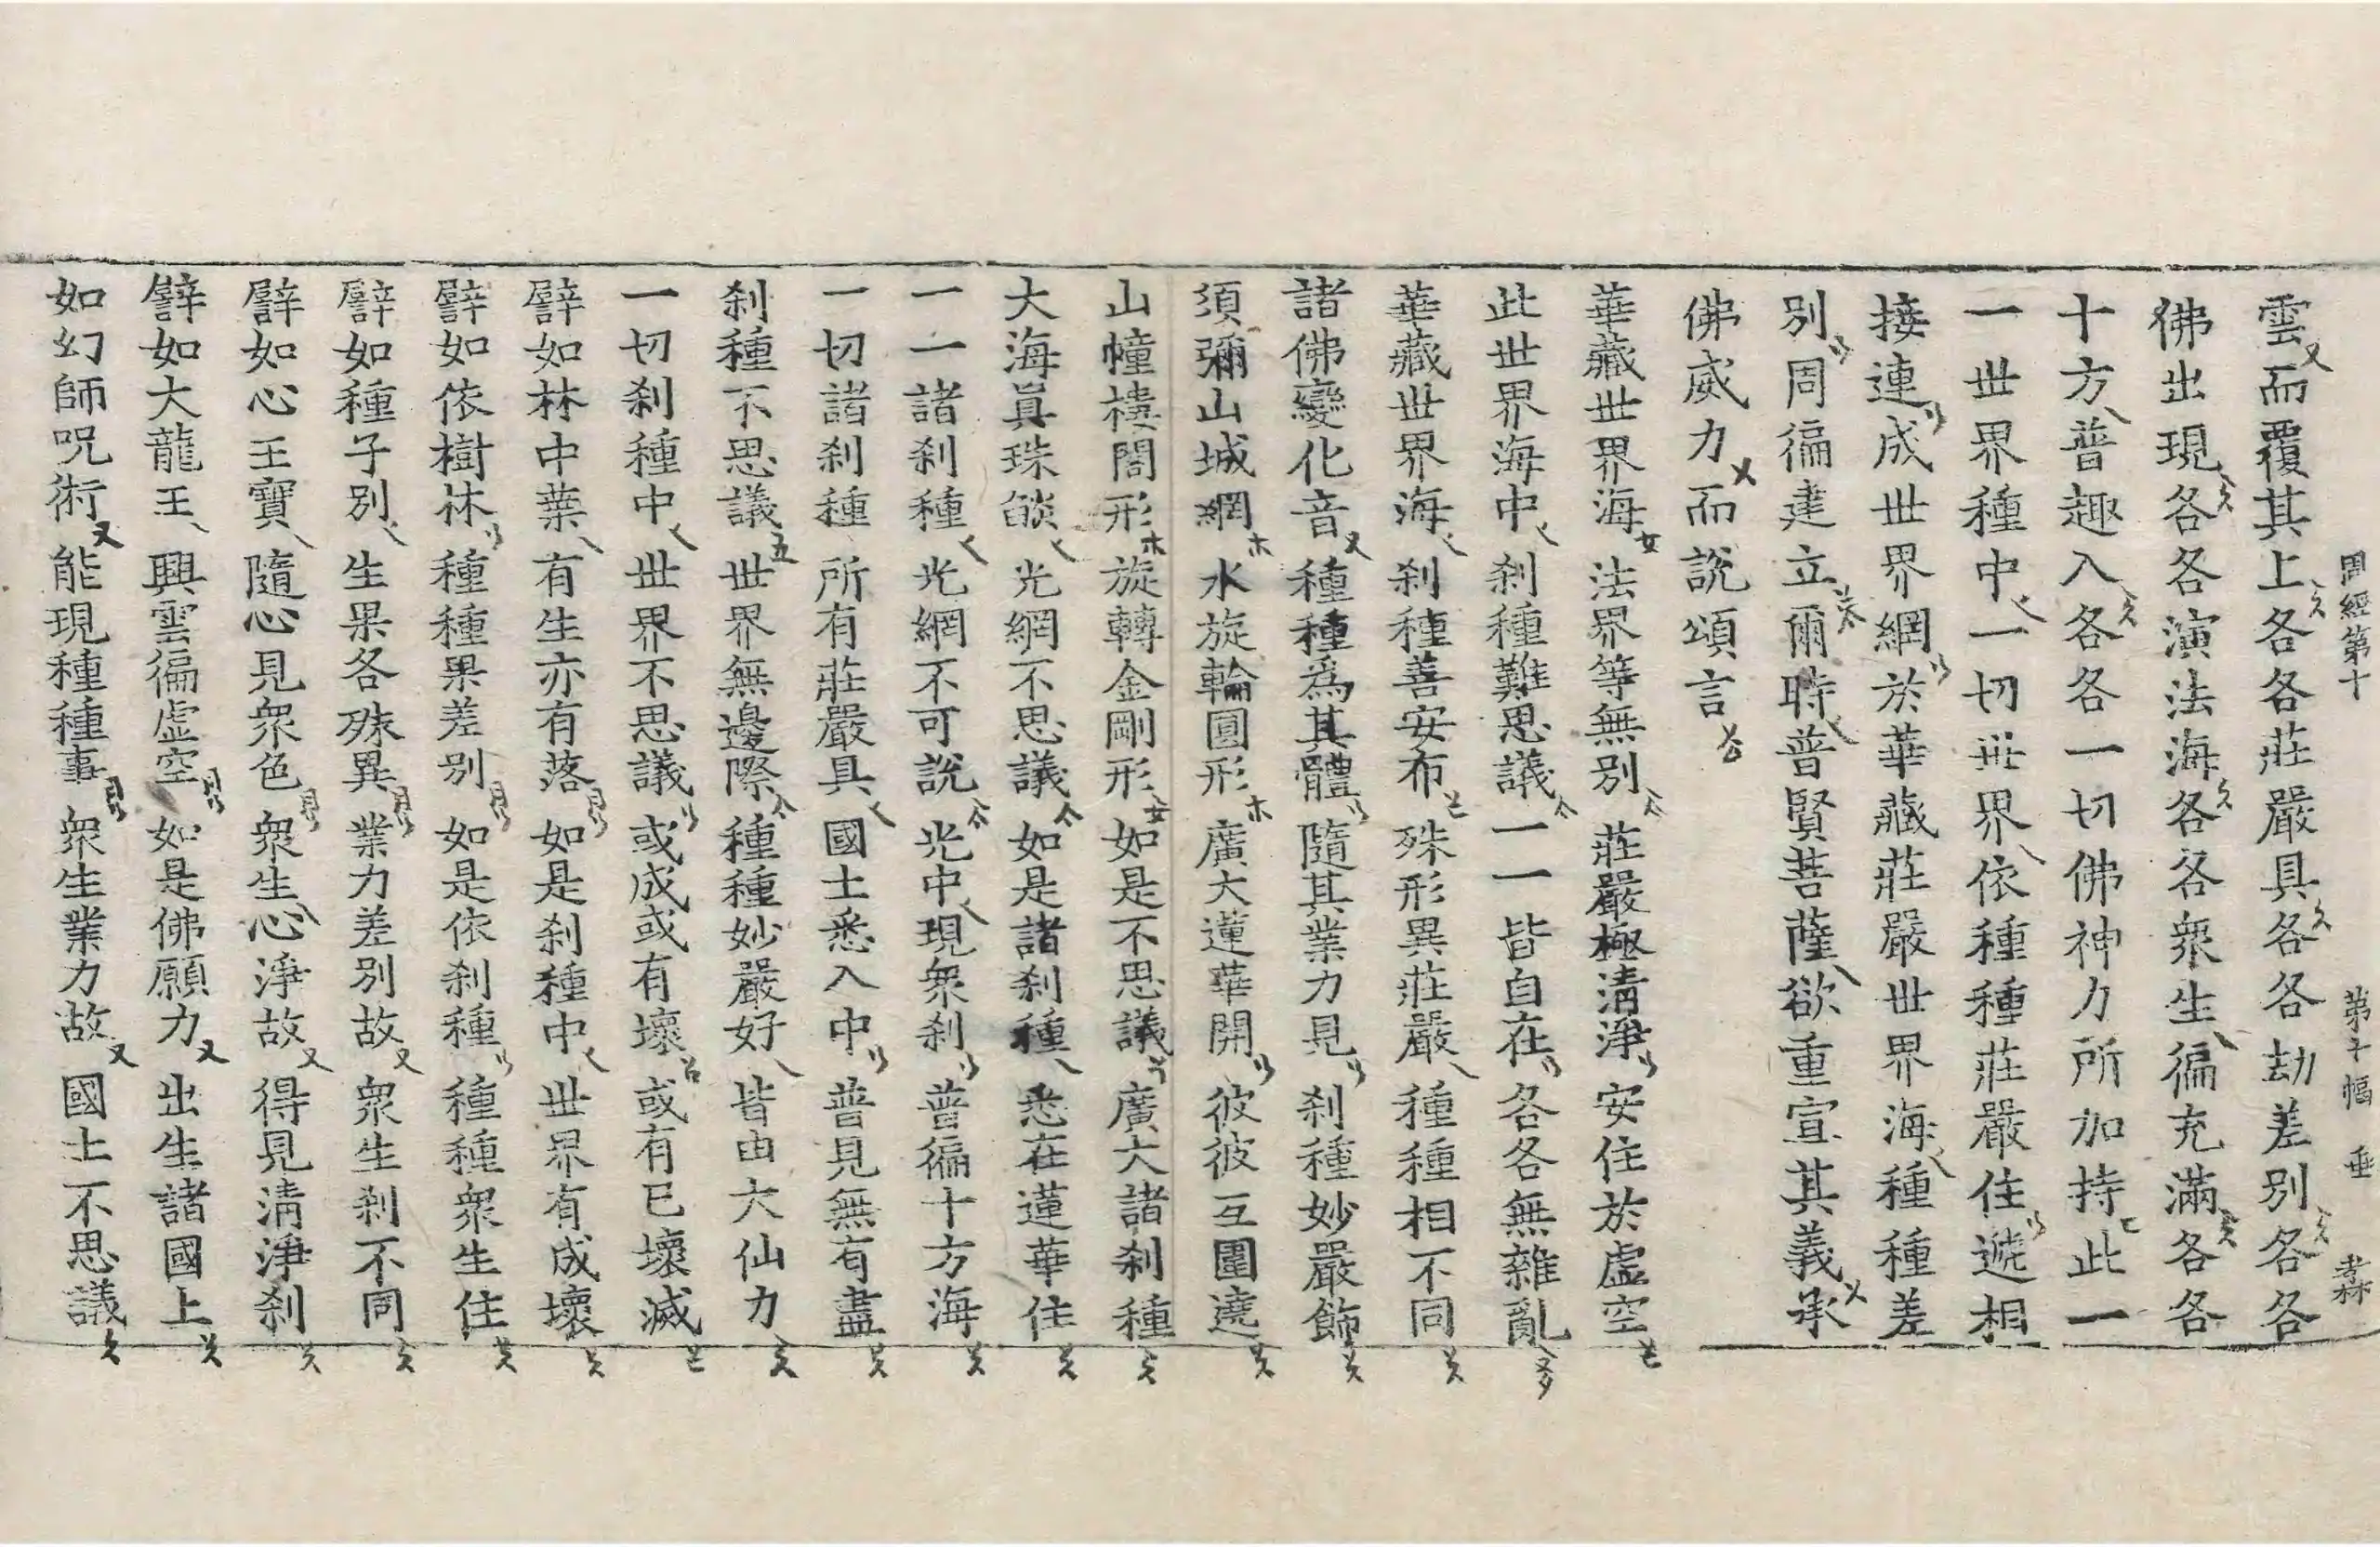 周經第十 第十幅 垂
雲而覆其上各各莊嚴具各各劫差別各各
佛出現各各演法海各各衆生徧充滿各各
十方普趣入各各一切佛神力所加持此一
一世界種中一切世界依種種莊嚴住遞相
接連成世界網於華藏莊嚴世界海種種差
別周徧建立爾時普賢菩薩欲重宣其義承
佛威力而說頌言
華藏世界海 法界等無別 莊嚴極清淨 安住於虛空
此世界海中 刹種難思議 一一皆自在 各各無雜亂
華藏世界海 刹種善安布 殊形異莊嚴 種種相不同
諸佛變化音 種種為其體 隨其業力見 刹種妙嚴飾
須彌山城網 水旋輪圓形 廣大蓮華開 彼彼互圍遶
山幢樓閣形 旋轉金剛形 如是不思議 廣大諸刹種
大海眞珠燄 光網不思議 如是諸刹種 悉在蓮華住
一一諸刹種 光網不可說 光中現衆刹 普徧十方海
一切諸刹種 所有莊嚴具 國土悉入中 普見無有盡
刹種不思議 世界無邊際 種種妙嚴好 皆由大仙力
一切刹種中 世界不思議 或成或有壞 或有已壞滅
譬如林中葉 有生亦有落 如是刹種中 世界有成壞
譬如依樹林 種種果差別 如是依刹種 種種衆生住
譬如種子別 生果各殊異 業力差別故 衆生刹不同
譬如心王寶 隨心見衆色 衆生心淨故 得見清淨刹
譬如大龍王 興雲徧虛空 如是佛願力 出生諸國土
如幻師呪術 能現種種事 衆生業力故 國土不思議